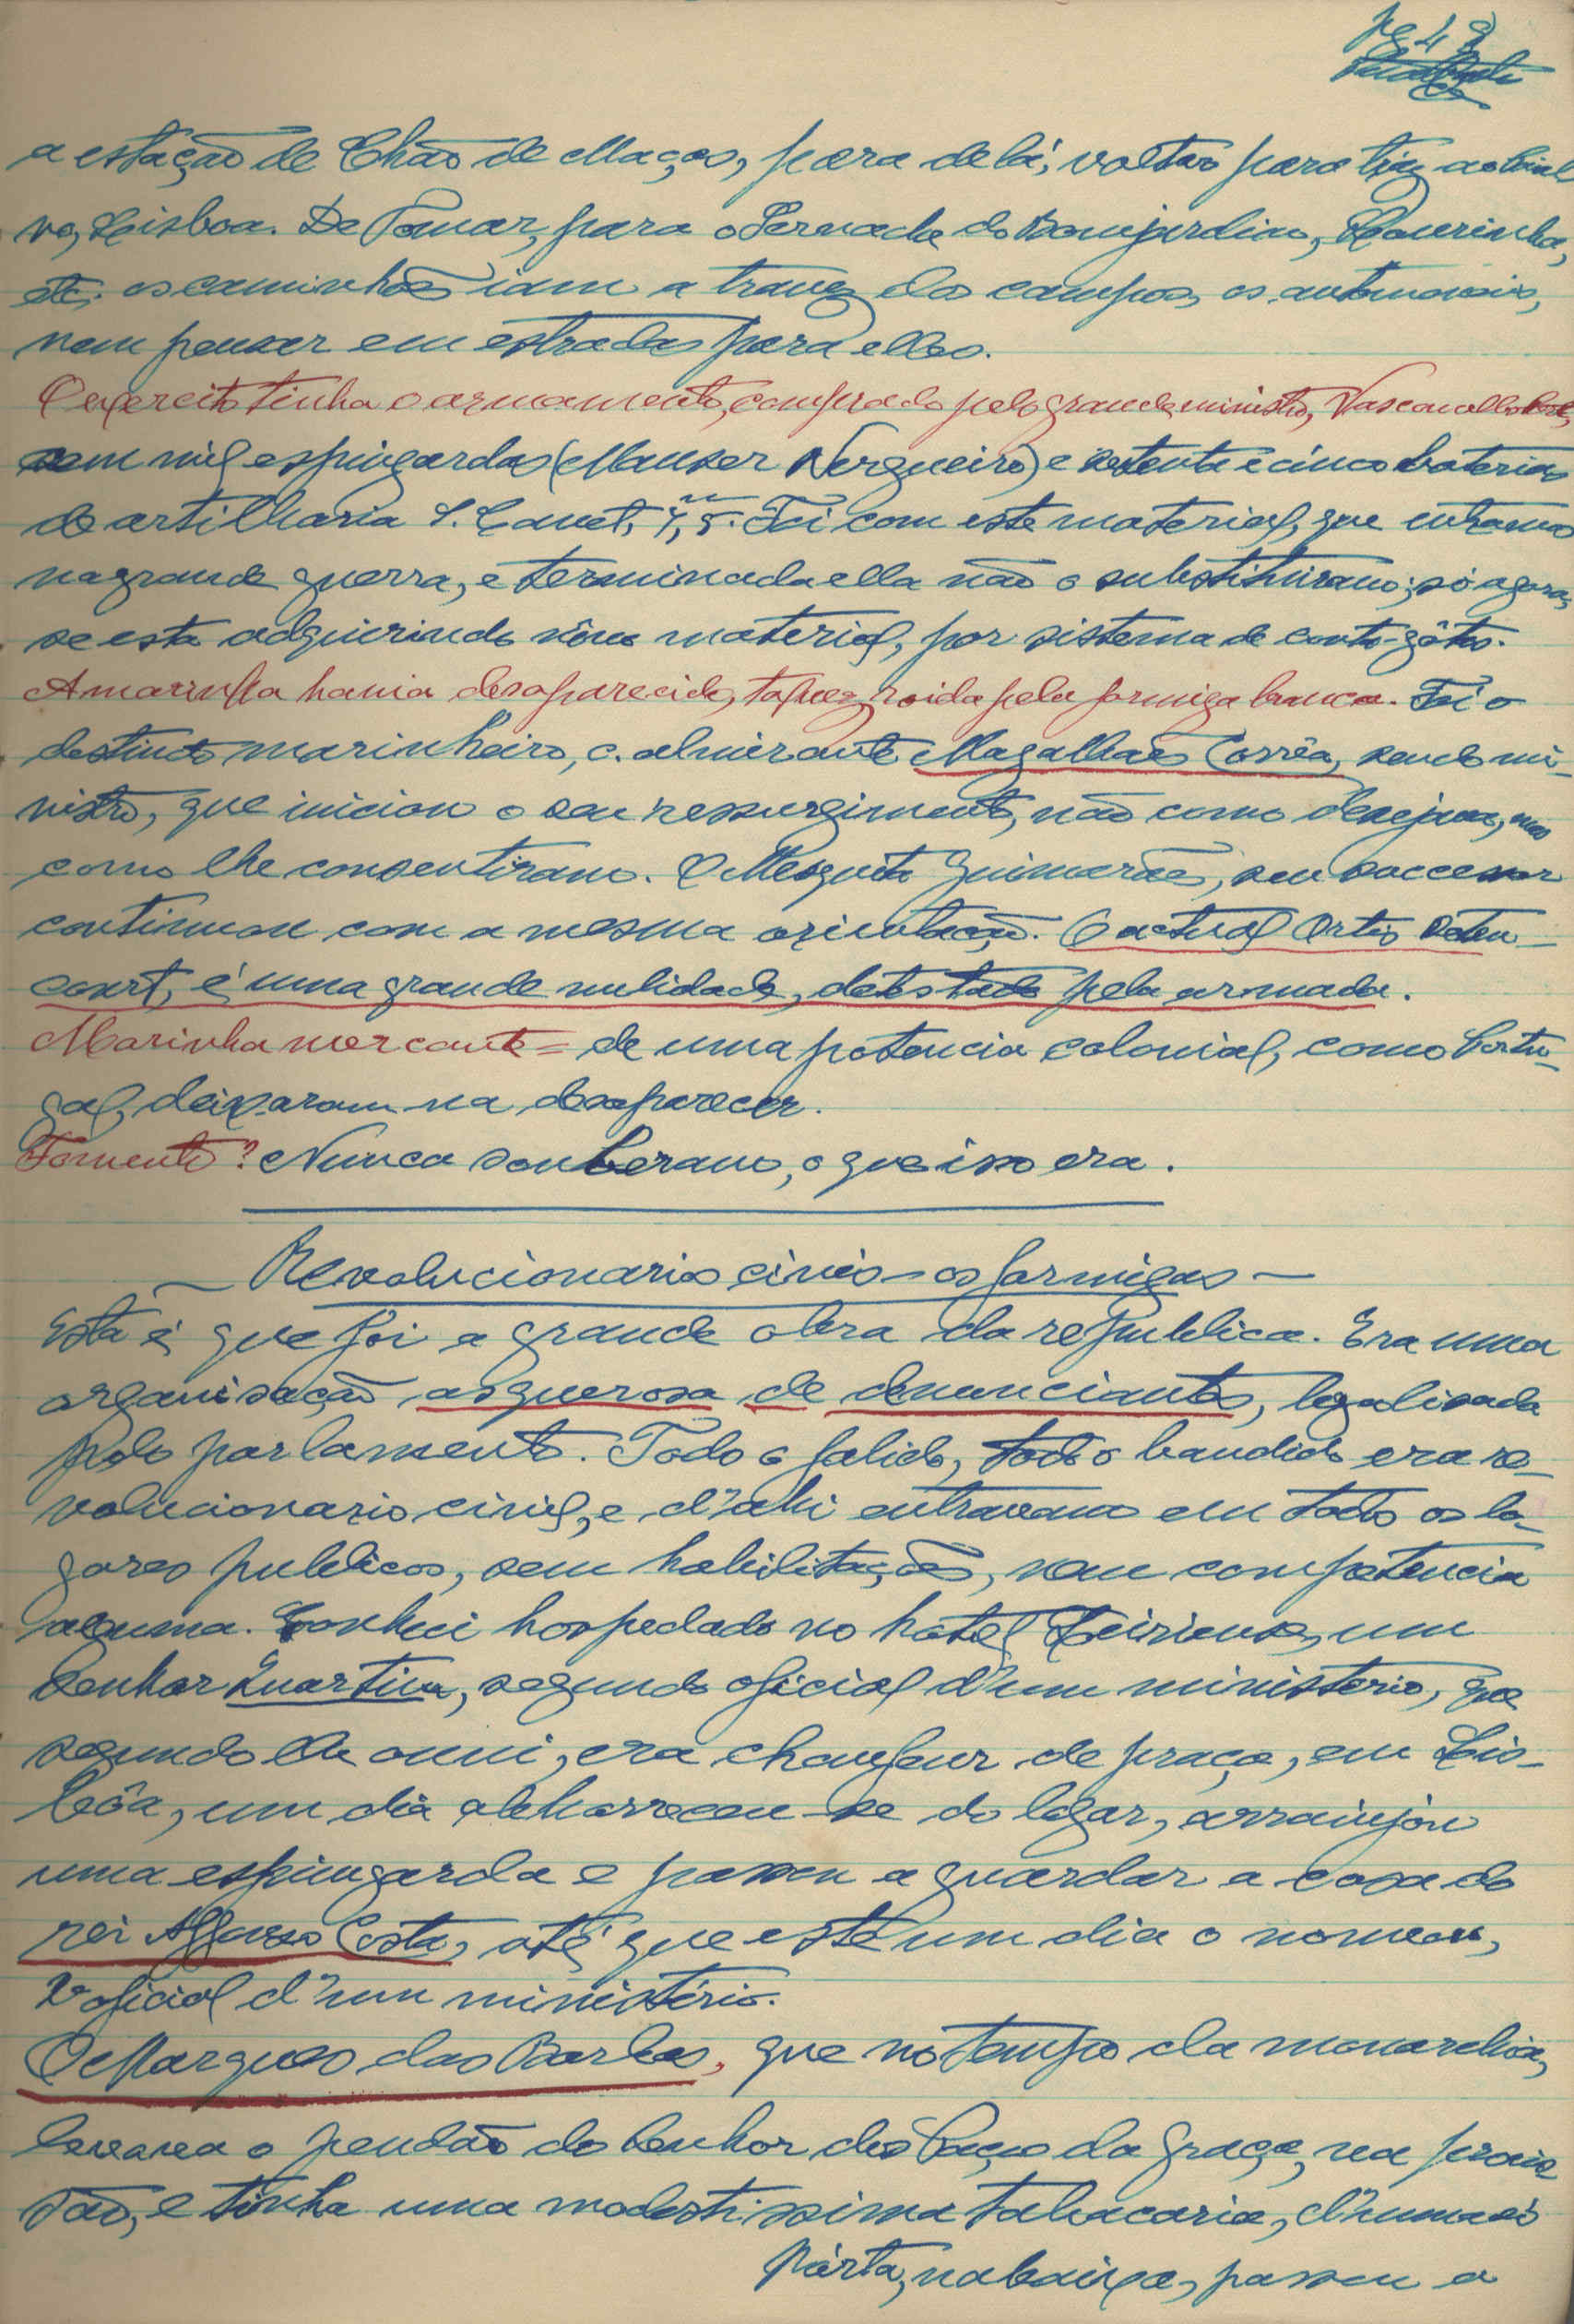 Pg 42
a estação de Chão de Maçãs, para de lá, voltar para traz
vo, Lisboa. De Tomar, para o Sernache do Bomjardim, Lourinhã,
etc. os caminhões iam a travez dos campos, os automoveis,
nem pensar em estradas para elles.
O exercito tinha o armamento, comprado pelo grande ministro, Vasconcellos Porto,
cem mil espingardas (Mauser Vergueiro) e setenta e cinco baterias
de artilharia S. Canet, 7,5. Foi com este material, que entramos
na grande guerra, e terminada ella não o substituiram; só agora,
se esta adquirindo nôvo material, por sistema de conta-gôtas.
A marinha havia desaparecido, talvez roida pela formiga branca. Foi o
destinto marinheiro, c. almirante Magalhães Corrêa, sendo mi-
nistro, que iniciou o seu ressurgimento, não como desejava, mas
como lhe consentiram. O Mesquita Guimarães, seu sucessor
continuou com a mesma orientação. O actual Ortis Beten-
court, é uma grande nulidade, detestado pela armada.
Marinha mercante = de uma potencia colonial, como Portu-
gal, deixaram na desaparecer.
Fomento? Nunca souberam, o que isso era.
— Revolucionarios civis – os formigas —
Esta é que foi a grande obra da republica. Era uma
organisação asquerosa de denunciantes, legalisada
pelo parlamento. Todo o falido, todo o bandido era re-
volucionario civil, e d'ahi entravam em todos os lo-
gares publicos, sem habilitações, nem competencia
alguma. Conheci hospedado no hotel Leiriense, um
Senhor Quartim, segundo oficial d'um ministerio, que
segundo lhe ouvi, era chaufeur de praça, em Lis-
bôa, um dia aborreceu-se do logar, arranjou
uma espingarda e passou a guardar a casa do
rei Affonso Costa, até que este um dia o nomeou,
2º oficial d'um ministério.
O Marques das Barbas, que no tempo da monarchia,
levava o pendão do Senhor dos Paços da Graça, na prociss
são, e tinha uma modestissima tabacaria, d'uma só
pórta, na baixa, passou a